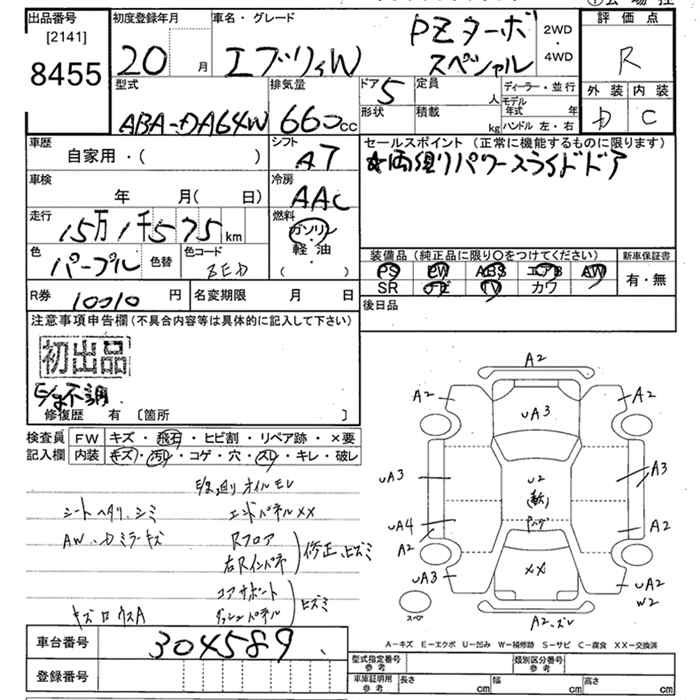 出品番号 [2141] 8455
初度登録年月 20 月
車名・グレード エブリィW PZターボスペシャル
2WD・4WD
評価点 R
外装 D 内装 C
型式 ABA-DA64W
排気量 660cc
ドア 5 形状
定員 人
積載 kg
ディーラー・並行
モデル年式 年
ハンドル 左・右
車歴 自家用・( )
シフト AT
セールスポイント (正常に機能するものに限ります)
☆両側リパワースライドドア
車検 年 月( 日)
冷房 AAC
走行 15万1千575km
燃料 ガソリン・軽油・( )
色 パープル 色替 色コード ZED
装備品 (純正品に限り○をつけてください)
PS PW ABS エアB AW
SR ナビ TV カワ
新車保証書 有・無
R券 10010円 名変期限 月 日
後日品
注意事項申告欄(不具合内容等は具体的に記入して下さい)
初出品
E/g不調
修復歴 有 〔箇所 〕
検査員記入欄
FW キズ・飛石・ヒビ割・リペア跡・×要
内装 キズ・汚レ・コゲ・穴・スレ・キレ・破レ
E/g廻りオイルモレ
シートヘタリ、シミ エンドパネルXX
AW、Dミラーキズ Rフロア
右Rインパネ
修正、ヒズミ
コアサポート
ヒズミ
A2
A2 A2
UA3
UA3 A3
U2
UA4 A2
A2
XX
UA3 UA2
W2
スペア
A2、ズレ
A-キズ E-エクボ U-凹み W-補修跡 S-サビ C-腐食 XX-交換済
車台番号 304589
登録番号
型式指定番号 参考 類別区分番号 参考
車庫証明用 参考 長さ cm 幅 cm 高さ cm